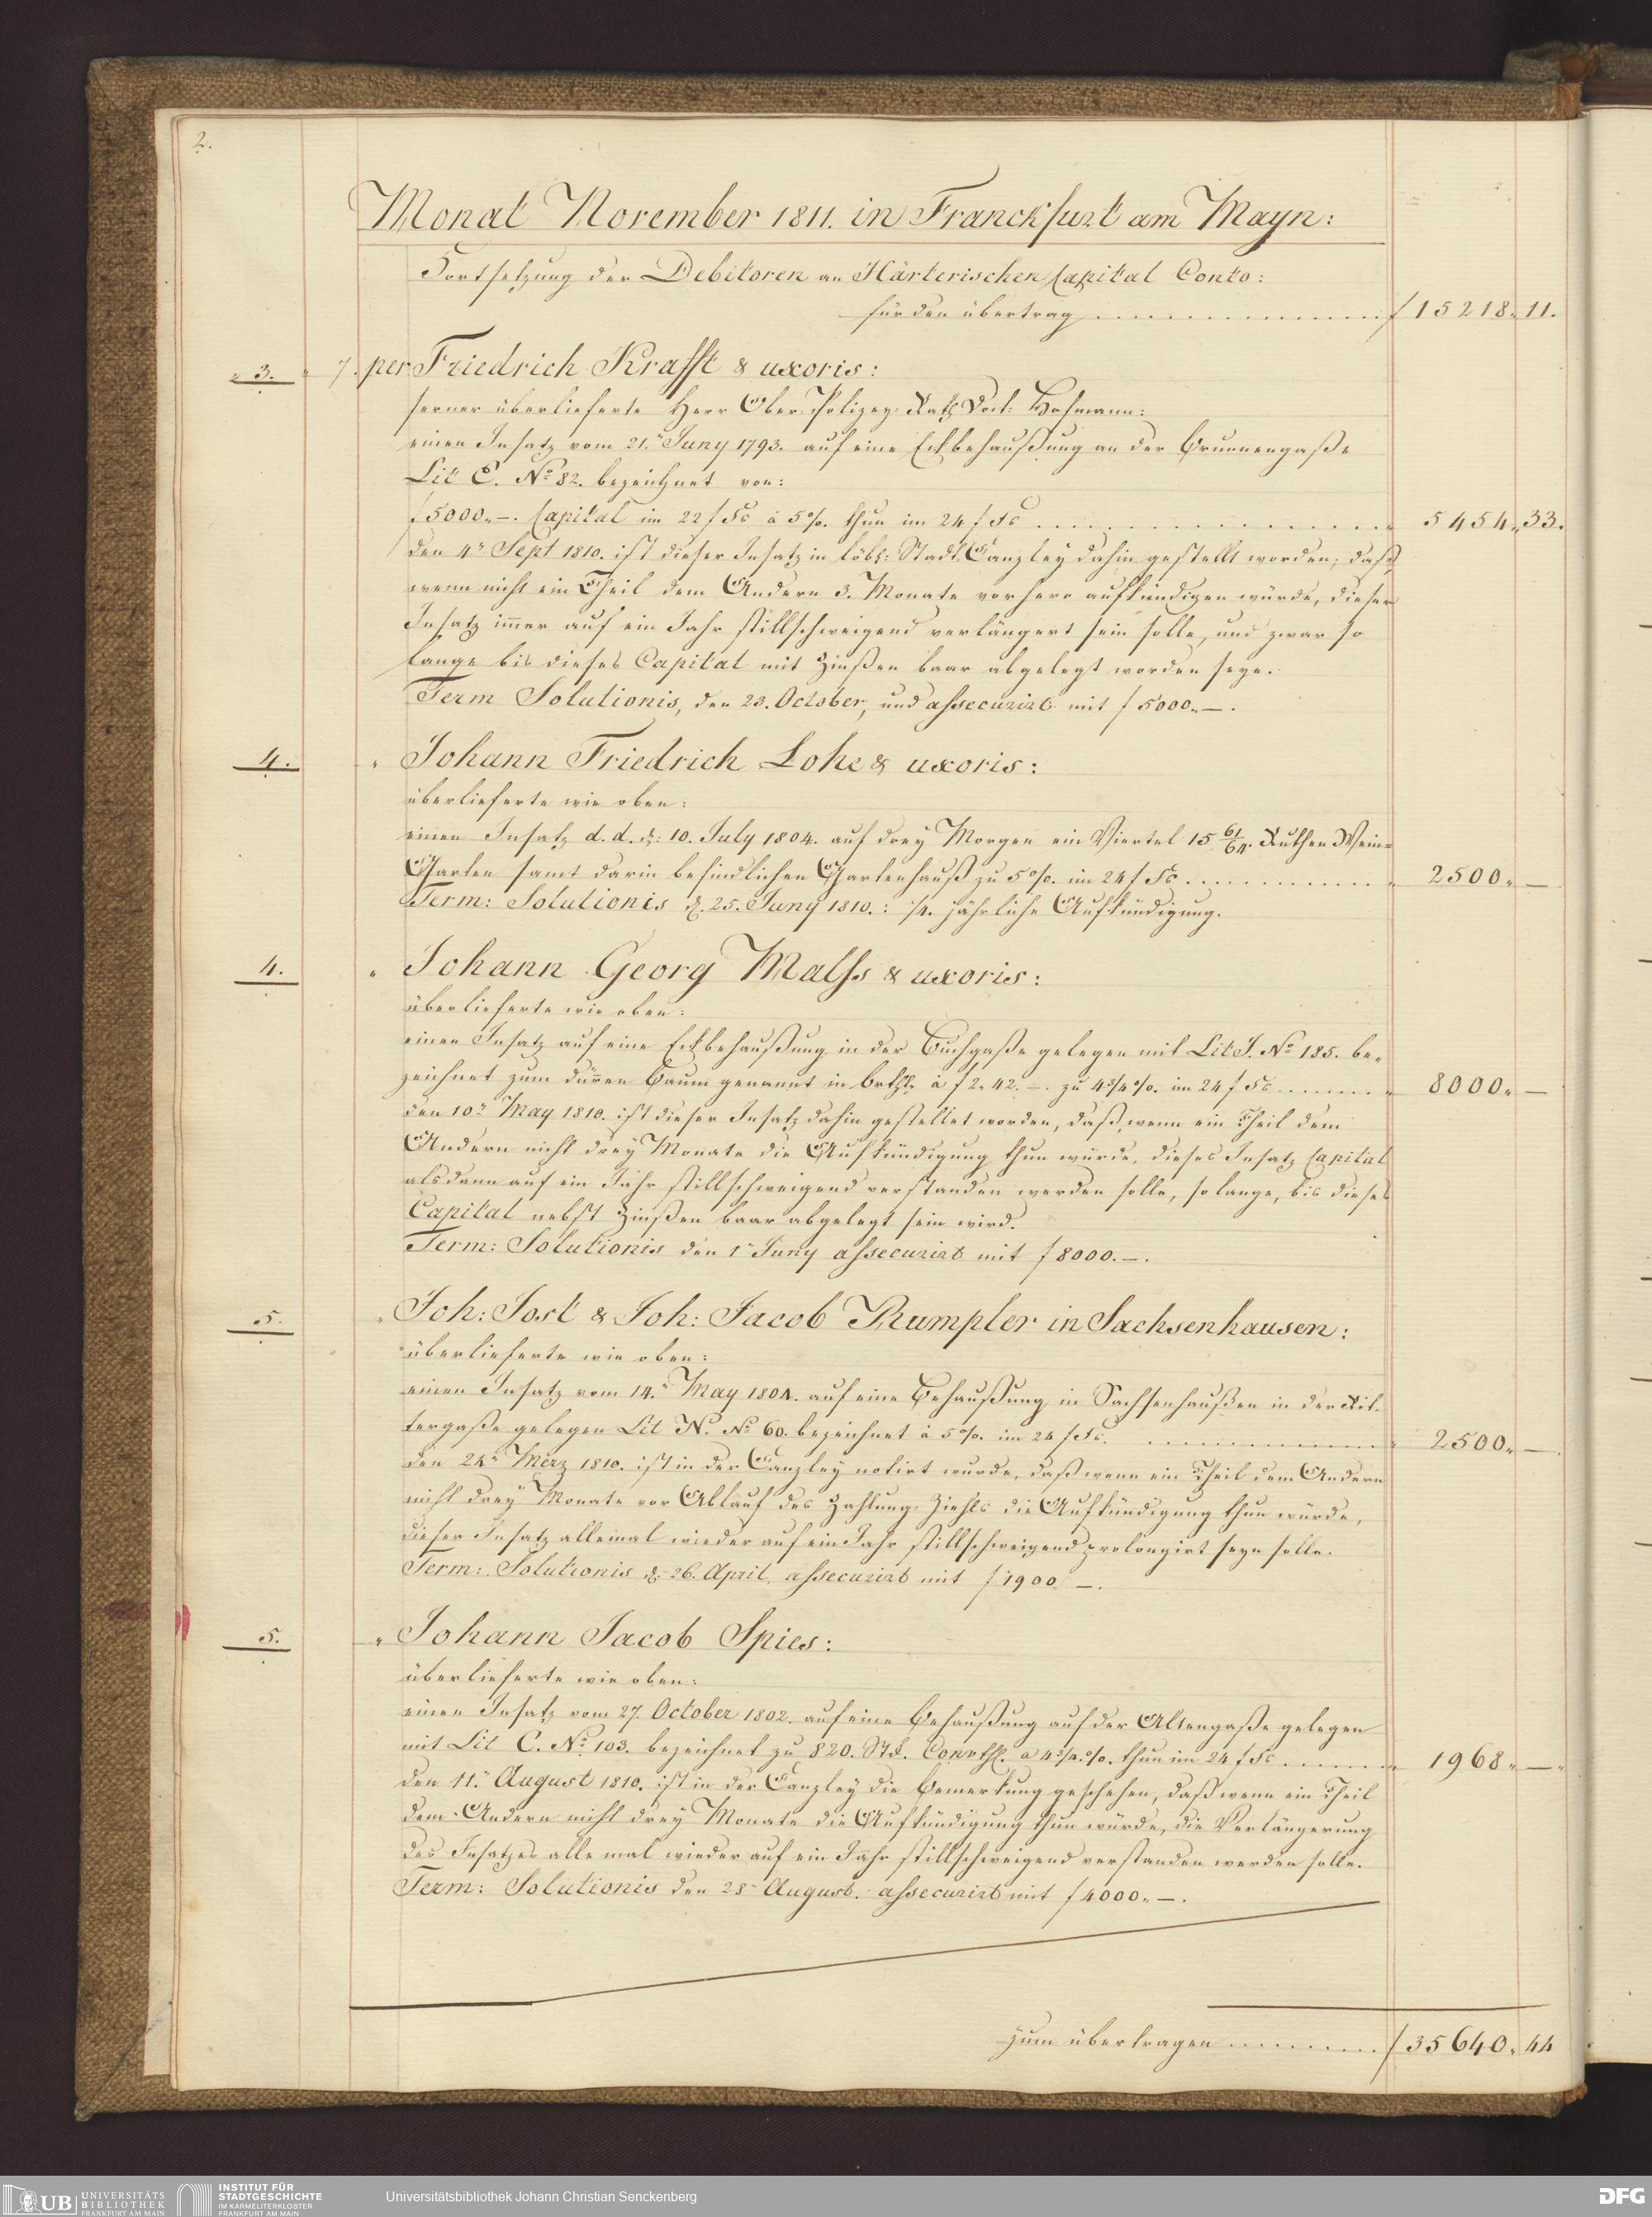 2.
Monat November 1811. in Franckfurt am Mayn:
Fortsetzung der Debitoren an Härterischen Capital Conto:
für den übertrag f 15218. 11.
3. 7. per Friedrich Krafft & uxoris:
ferner überlieferte Herr Ober Polizey Rath Doct: Hofmann:
einen Insatz vom 21. Juny 1793. auf eine Eckbehaußung an der Brunnengaße
Lit E. No 82. bezeichnet von:
f 5000.–. Capital im 22 f Fs à 5%. thun im 24 f Fs 5454. 33.
den 4n Sept 1810. ist dieser Insatz in löbl: Stadt Canzley dahin gestellt worden, daß
wenn nicht ein Theil dem Andern 3. Monate vorhero aufkündigen würde, dieser
Insatz immer auf ein Jahr stillschweigend verlängert sein solle, und zwar so
lange bis dieses Capital mit Zinßen baar abgelegt worden seye.
Term Solutionis, den 23. October, und assecurirt mit f 5000.–.
4. " Johann Friedrich Lohe & uxoris:
überlieferte wie oben:
einen Insatz d. d. d: 10. July 1804. auf drey Morgen ein Viertel 15 61/64. Ruthen Wein=
Garten samt darin befindlichen Gartenhauß zu 5%. im 24 f Fs 2500. –
Term: Solutionis d. 25. Juny 1810.: 1/4. jährliche Aufkündigung.
4. " Johann Georg Malss & uxoris:
überlieferte wie oben:
einen Insatz auf eine Eckbehaußung in der Buchgaße gelegen mit Lit J. No 185. be=
zeichnet zum dürren Baum genannt in à f 2. 42.–. zu 4 3/4%. im 24 f Fs 8000. –
den 10n May 1810. ist dieser Insatz dahin gestellet worden, daß, wenn ein Theil dem
Andern nicht drey Monate die Aufkündigung thun würde, dieses Insatz Capital
alsdann auf ein Jahr stillschweigend verstanden werden solle, so lange, bis dieses
Capital nebst Zinßen baar abgelegt sein wird.
Term: Solutionis den 1n Juny assecurirt mit f 8000.–.
5. " Joh: Jost & Joh: Jacob Rumpler in Sachsenhausen:
überlieferte wie oben:
einen Insatz vom 14. May 1804. auf eine Behaußung in Sachsenhaußen in der Rit=
tergaße gelegen Lit N. No 60. bezeichnet à 5%. im 24 f Fs. 2500. –
den 24n Merz 1810. ist in der Canzley notirt wurde, daß wenn ein Theil dem Andern
nicht drey Monate vor Ablauf des Zahlung= Ziehls die Aufkündigung thun würde,
dieser Insatz allemal wieder auf ein Jahr stillschweigend prolongirt seyn solle.
Term: Solutionis d. 26. April assecurirt mit f 1900 –.
5. " Johann Jacob Spies:
überlieferte wie oben:
einen Insatz vom 27. October 1802. auf eine Behaußung auf der Altengaße gelegen
mit Lit C. No 103. bezeichnet zu 820. Stk. Convthl. a 4 3/4.%. thun im 24 f Fs 1968. –
den 11. August 1810. ist in der Canzley die Bemerkung geschehen, daß wenn ein Theil
dem Andern nicht drey Monate die Aufkündigung thun würde, die Verlängerung
des Insatzes alle mal wieder auf ein Jahr stillschweigend verstanden werden solle.
Term: Solutionis den 28 August. assecurirt mit f 4000.–.
zum übertragen f 35640. 44
UB UNIVERSITÄTS
BIBLIOTHEK
FRANKFURT AM MAIN
INSTITUT FÜR
STADTGESCHICHTE
IM KARMELITERKLOSTER
FRANKFURT AM MAIN
Universitätsbibliothek Johann Christian Senckenberg
DFG